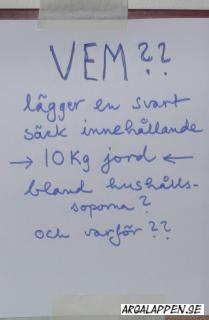 VEM??
lägger en svart
säck innehållande
→ 10 Kg jord ←
bland hushålls-
soporna?
och varför??
ARGALAPPEN.SE